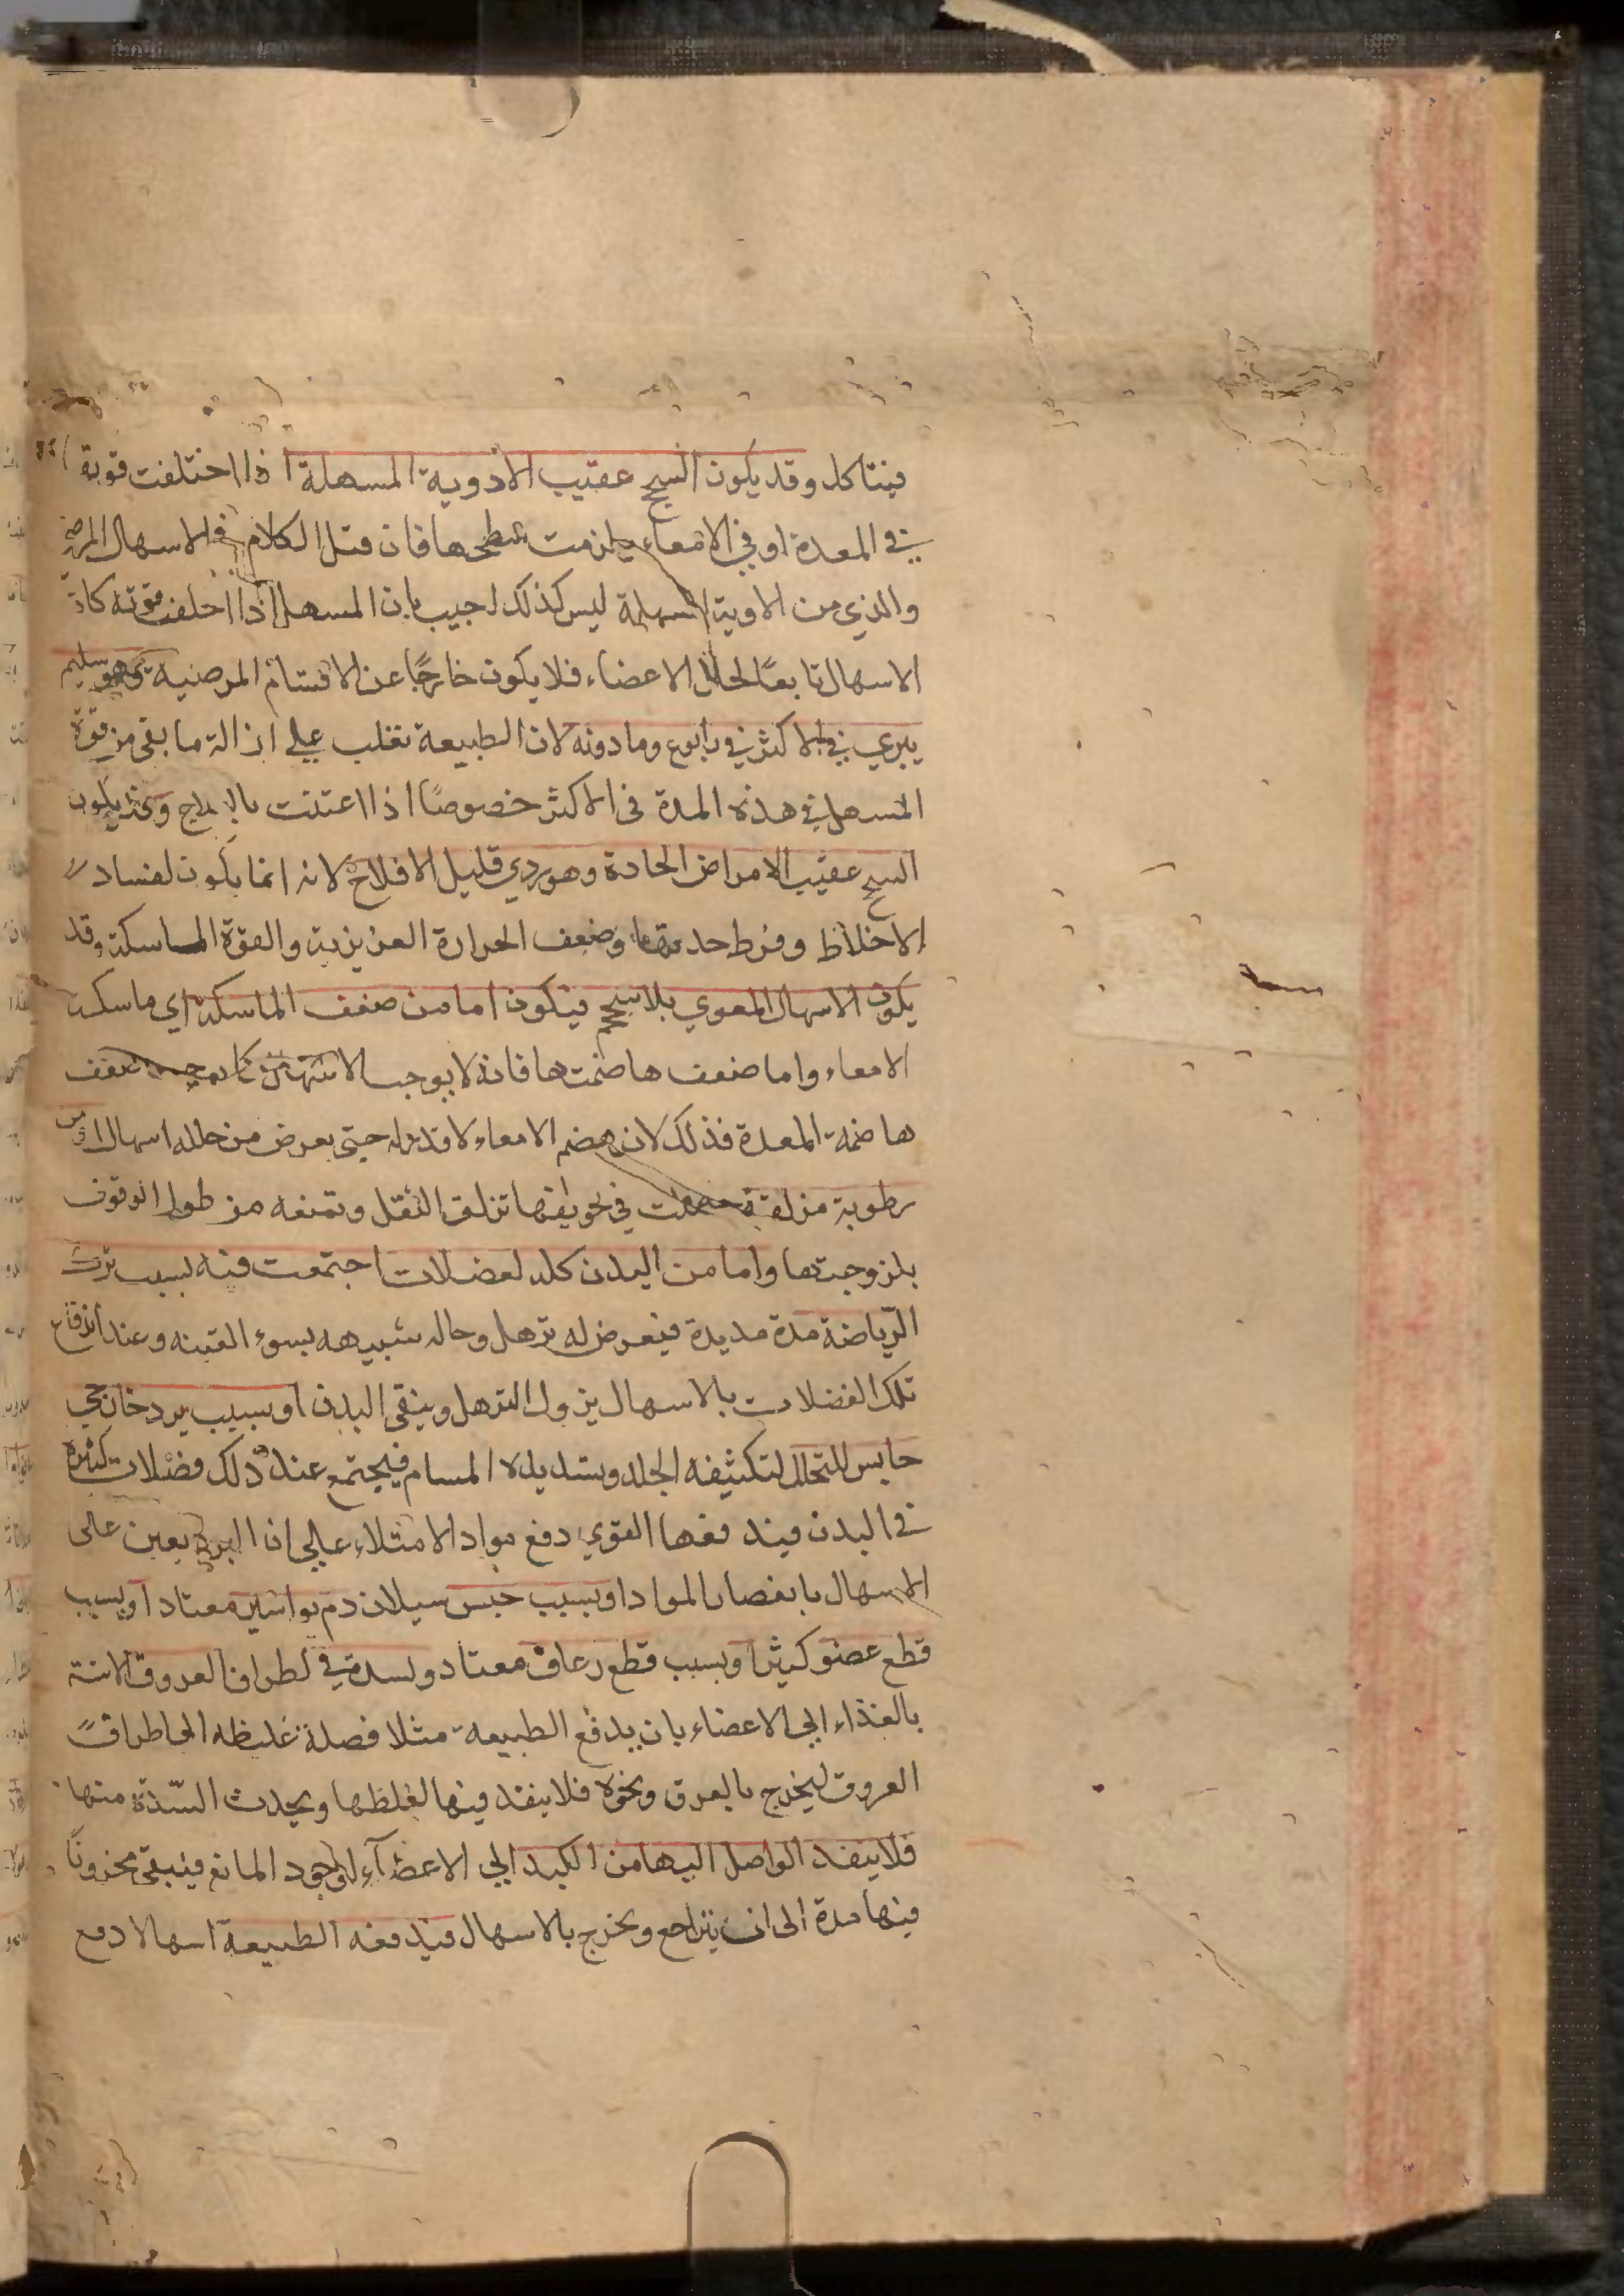 فيتاكل وقد يكون السحج عقيب الادوية المسهلة اذا اختلفت قوته
في المعدة او في الامعاء ولزمت سطحها فان قيل الكلام في الاسهال المرضي
والذي من الاوية المسهلة ليس كذلك اجيب بان المسهل اذا اختلفت قوته كان
الاسهال تابعًا لحال الاعضاء فلا يكون خارجًا عن الاقسام المرضية وهو سليم
يبري في الاكثر في رابوع وما دونه لان الطبيعة تغلب علي ازالة ما بقي من قوة
المسهل في هذه المدة في الاكثر خصوصًا اذا اعتنت بالعلاج وقد يكون
السحج عقيب الامراض الحادة وهو ردي قليل الافلاح لانه انما يكون لفساد
الاخلاط وفرط حدتها وضعف الحرارة الغريزية والقوة الماسكة وقد
يكون الاسهال المعوي بلا سحج فيكون اما من ضعف الماسكة اي ماسكة
الامعاء واما ضعف هاضمتها فانه لا يوجب الاسهال كما يوجبه ضعف
هاضمة المعدة فذلك لان هضم الامعاء لا قدر له حتى يعرض من خلله اسهال او من
رطوبة مزلقة حصلت في تجويفها تزلق الثقل وتمنعه من طول الوقوف
بلزوجتها واما من البدن كله لفضلات اجتمعت فيه لسبب ترك
الرّياضة مدة مديدة فيعرض له ترهل وحاله شبيهه بسوء القنيه وعند اندفاع
تلك الفضلات بالاسهال يزول الترهل وينقي البدن او بسبب برد خارجي
حابس للتحلل لتكثيفه الجلد وتسديده المسام فيجتمع عند ذلك فضلات كثيرة
في البدن فيندفعها القوي دفع مواد الامتلاء علي ان البرد يعين على
الاسهال بانعصار المواد او بسبب حبس سيلان دم بواسير معتاد او بسبب
قطع عضو كبير او بسبب قطع رعاف معتاد ولسدة في اطراف العروق الاتية
بالغذاء الي الاعضاء بان يدفع الطبيعة مثلا فضلة غليظه الى اطراف
العروق ليخرج بالعرق ونحوه فلا ينفد فيها لغلظها ويحدث السّدة منها
فلا ينفد الواصل اليها من الكبد الي الاعضآء لوجود المانع فيبقى مخزونًا
فيها مدة الى ان يتراجع ويخرج بالاسهال فيدفعه الطبيعة اسهالا دفع